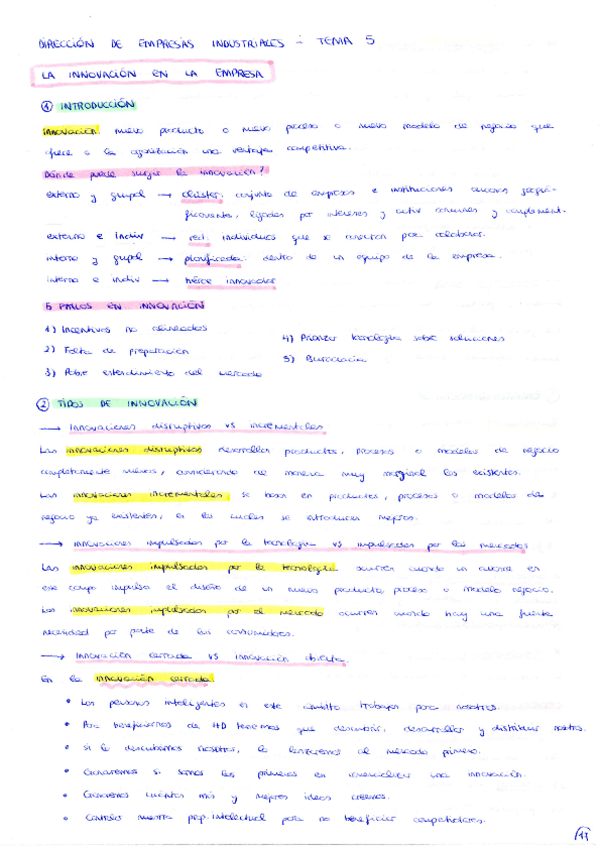 DIRECCIÓN DE EMPRESAS INDUSTRIALES - TEMA 5
LA INNOVACIÓN EN LA EMPRESA
① INTRODUCCIÓN
Innovación: nuevo producto o nuevo proceso o nuevo modelo de negocio que
ofrece a la organización una ventaja competitiva.
Dónde puede surgir la innovación?
externo y grupal → clúster: conjunto de empresas e instituciones cercanas geográ-
ficamente, ligadas por intereses y activ comunes y complement.
externo e indiv → red: individuos que se conectan para colaborar.
interno y grupal → planificada: dentro de un equipo de la empresa.
interno e indiv → héroe innovador
5 FALLOS EN INNOVACIÓN
1) Incentivos no alineados
2) Falta de preparación
3) Pobre entendimiento del mercado
4) Priorizar tecnología sobre soluciones
5) Burocracia
② TIPOS DE INNOVACIÓN
→ Innovaciones disruptivas vs incrementales
Las innovaciones disruptivas desarrollan productos, procesos o modelos de negocio
completamente nuevos, considerando de manera muy marginal los existentes.
Las innovaciones incrementales, se basan en productos, procesos o modelos de
negocio ya existentes, en los cuales se introducen mejoras.
→ Innovaciones impulsadas por la tecnología vs impulsadas por los mercados
Las innovaciones impulsadas por la tecnología ocurren cuando un avance en
ese campo impulsa el diseño de un nuevo producto, proceso o modelo negocio.
Las innovaciones impulsadas por el mercado ocurren cuando hay una fuerte
necesidad por parte de los consumidores.
→ Innovación cerrada vs innovación abierta.
En la innovación cerrada:
• Las personas inteligentes en este ámbito trabajan para nosotros.
• Para beneficiarnos de I+D tenemos que descubrir, desarrollar y distribuir nosotros.
• Si lo descubrimos nosotros, lo lanzaremos al mercado primero.
• Ganaremos si somos los primeros en comercializar una innovación.
• Ganaremos cuantas más y mejores ideas creemos.
• Controlar nuestra prop. intelectual para no beneficiar competidores.